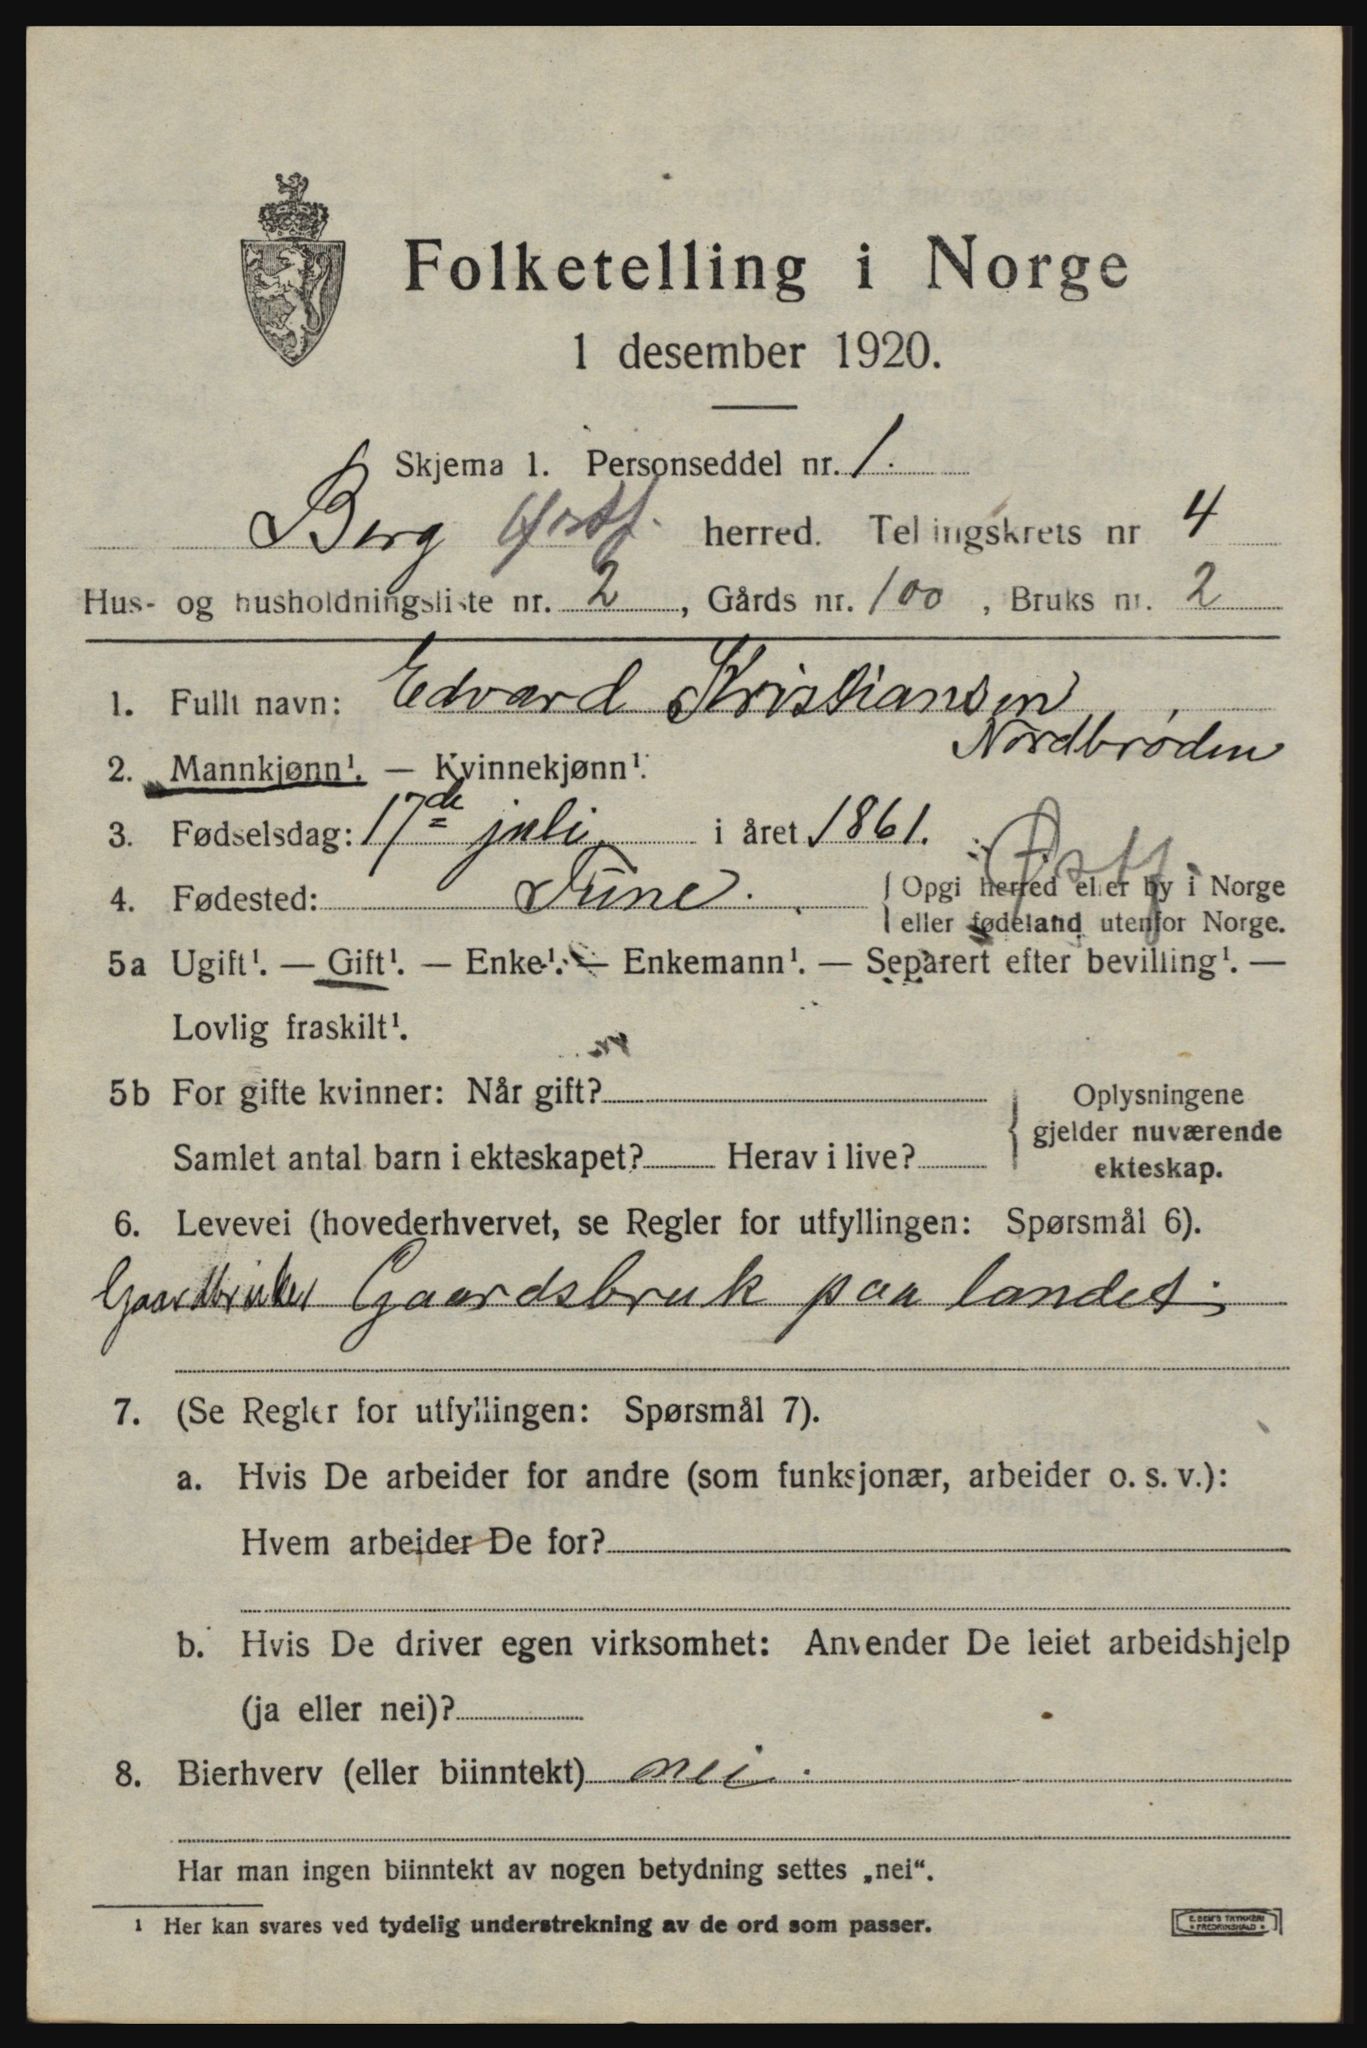 Folketelling i Norge
1 desember 1920.
Skjema 1. Personseddel nr. 1.
Berg Østf. herred. Tellingskrets nr 4
Hus- og husholdningsliste nr. 2, Gårds nr. 100, Bruks nr. 2
1. Fullt navn: Edvard Kristiansen
Nordbrøden
2. Mannkjønn¹. — Kvinnekjønn¹.
3. Fødselsdag: 17de juli i året 1861.
Østf.
4. Fødested: Tune. { Opgi herred eller by i Norge
eller fødeland utenfor Norge.
5a Ugift¹. — Gift¹. — Enke¹. — Enkemann¹. — Separert efter bevilling¹. —
Lovlig fraskilt¹.
5b For gifte kvinner: Når gift?
Samlet antal barn i ekteskapet? Herav i live?
{ Oplysningene
gjelder nuværende
ekteskap.
6. Levevei (hovederhvervet, se Regler for utfyllingen: Spørsmål 6).
Gaardbruker Gaardsbruk paa landet.
7. (Se Regler for utfyllingen: Spørsmål 7).
a. Hvis De arbeider for andre (som funksjonær, arbeider o. s. v.):
Hvem arbeider De for?
b. Hvis De driver egen virksomhet: Anvender De leiet arbeidshjelp
(ja eller nei)?
8. Bierhverv (eller biinntekt) nei.
Har man ingen biinntekt av nogen betydning settes „nei“.
¹ Her kan svares ved tydelig understrekning av de ord som passer.
E. SEM'S TRYKKERI
* FREDRIKSHALD *